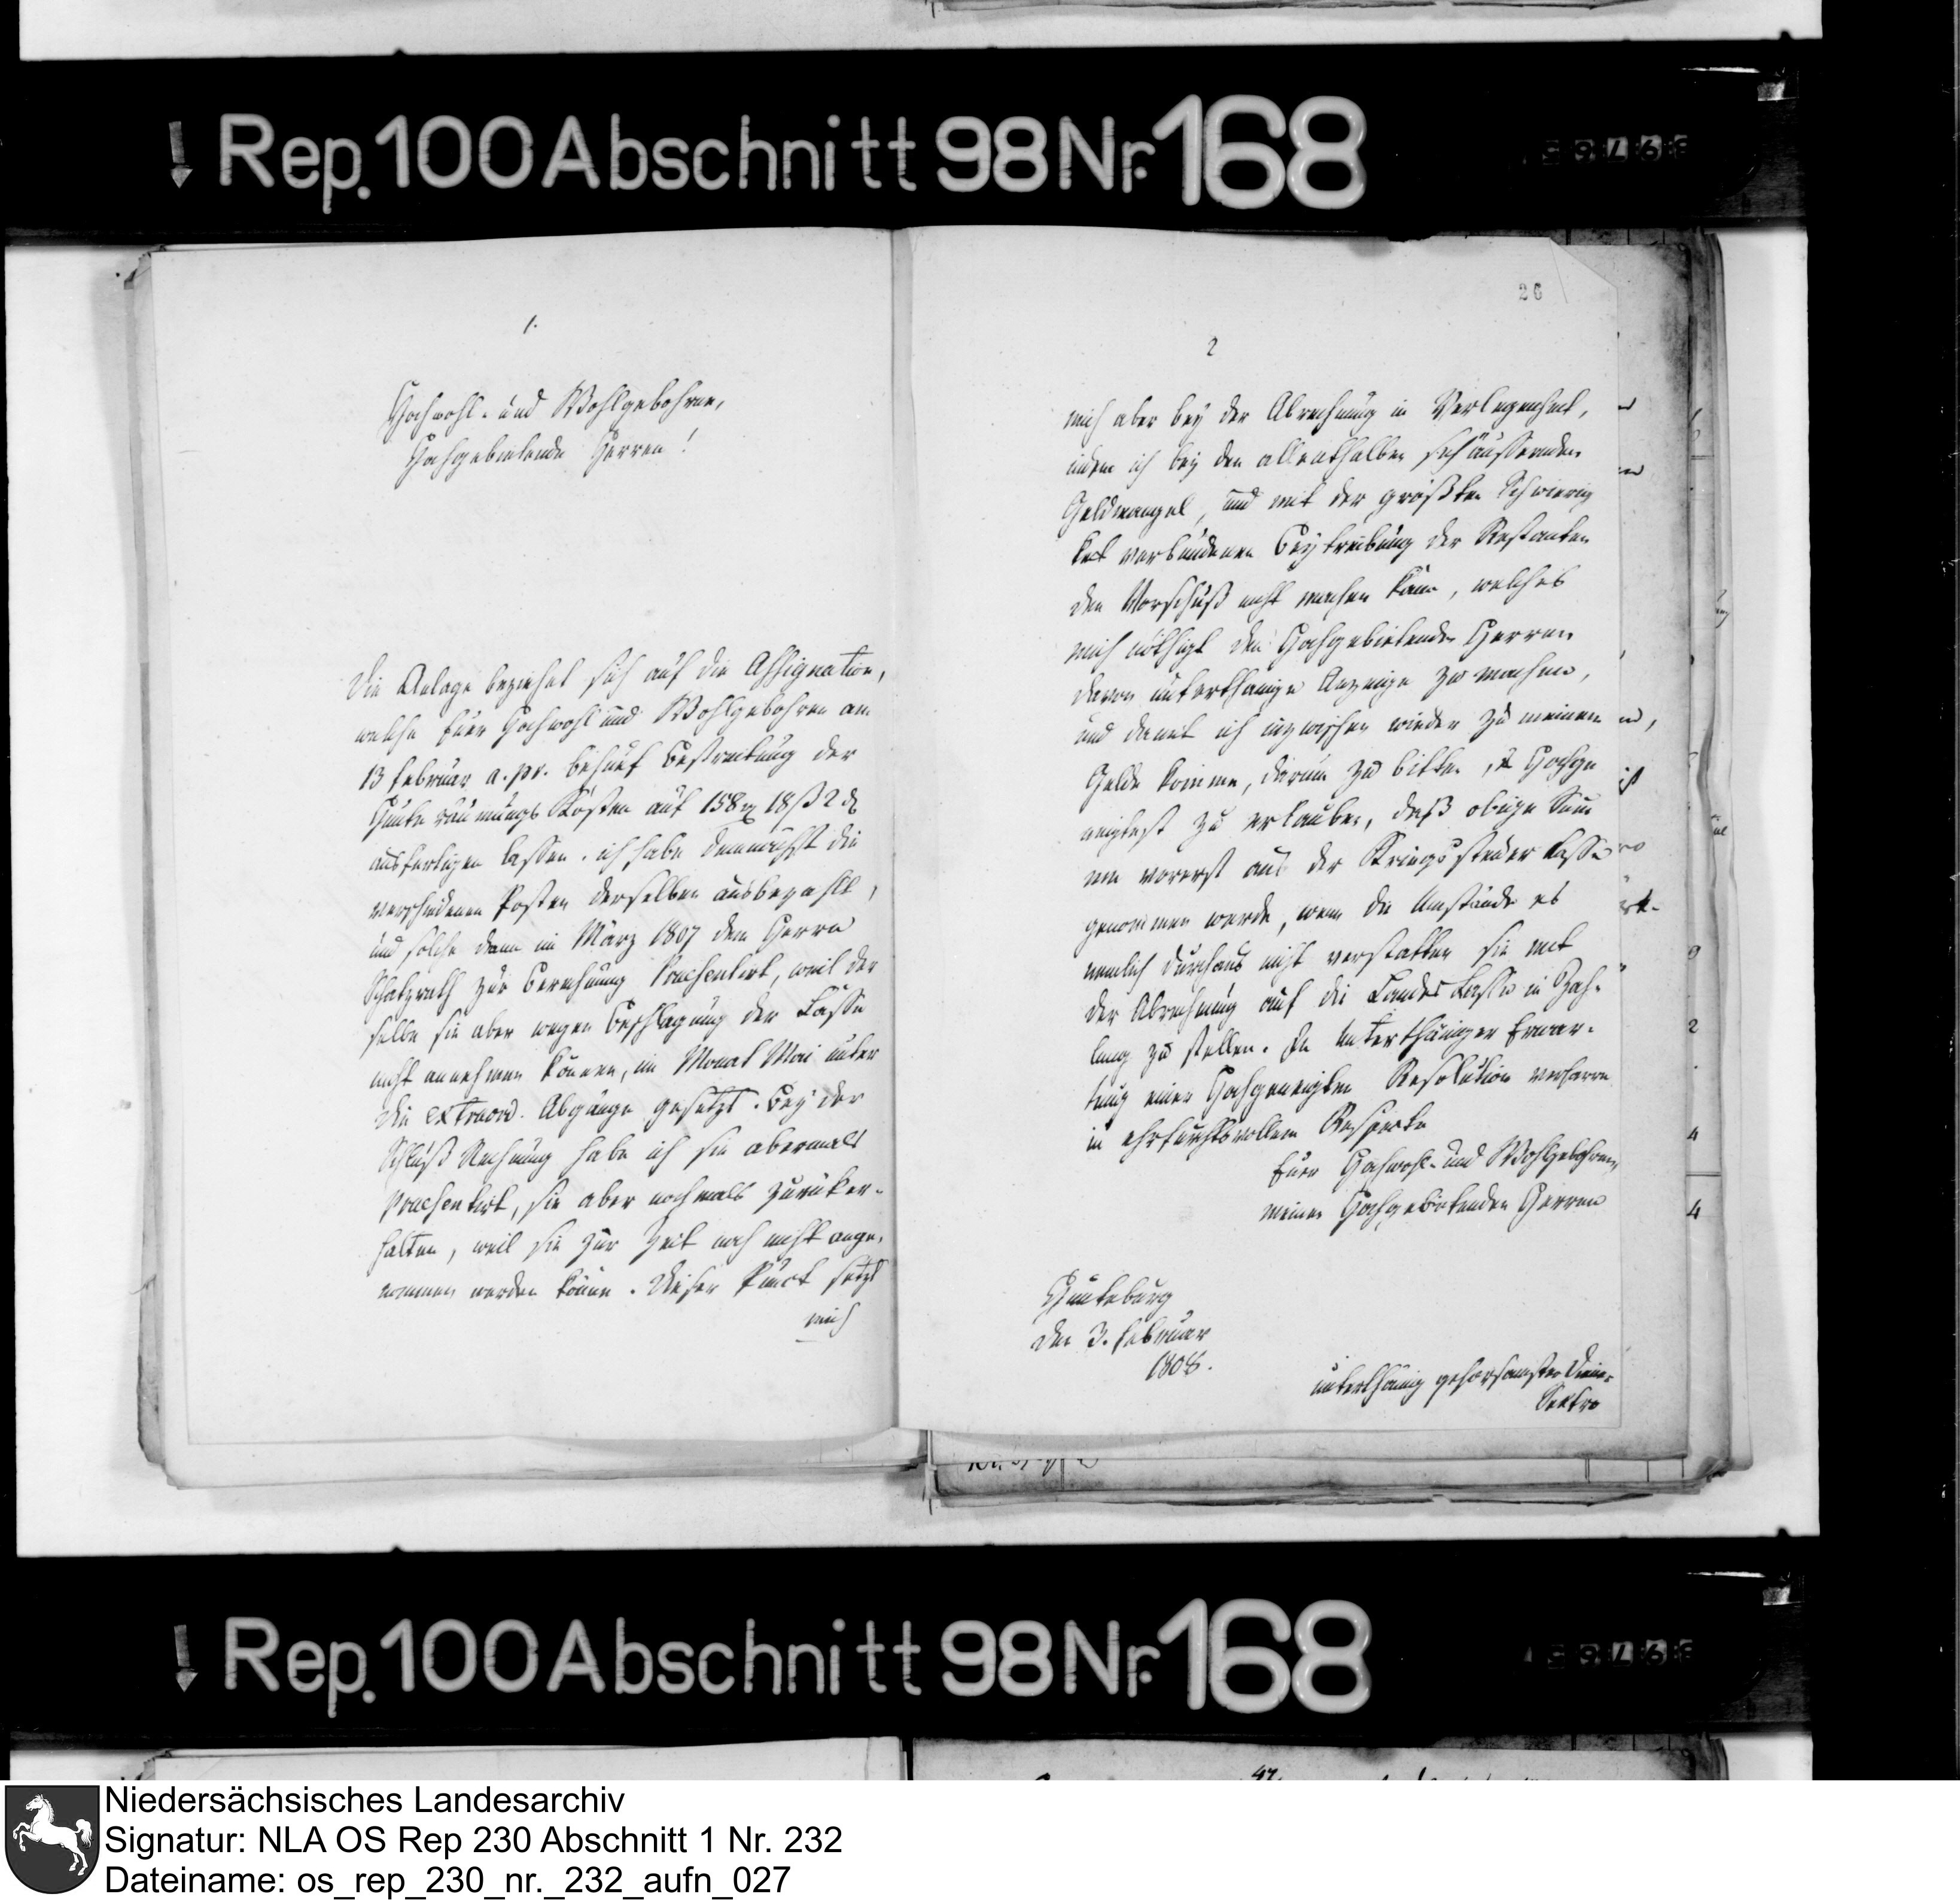 Rep. 100 Abschnitt 98 Nr. 168
1.
Hochwohl- und Wohlgebohrne,
Hochgebietende Herren!
Die Anlage beziehet sich auf die Assignation,
welche Euer Hochwohl und Wohlgebohren am
13 Februar a. pr. behuef Bestreitung der
Hunte räumungs Kosten auf 158 rt 18 ß 2 d
ausfertigen lassen. ich habe demnächst die
verschiedenen Posten derselben ausbezahlt,
und solche dann im März 1807 dem Herrn
Schatzrath zur Berechnung praesentirt, weil der
selbe sie aber wegen Beschlagung der Casse
nicht annehmen können, im Monat Mai unter
die extraord. Abgänge gesetzt. Bey der
Schluß Rechnung habe ich sie abermals
praesentirt, sie aber nochmals zurücker-
halten, weil sie zur Zeit noch nicht ange-
nommen werden könne. Dieser Punct setzt
mich
26
2
mich aber bey der Abrechnung in Verlegenheit,
indem ich bey den allenthalben sich äussernden
Geldmangel, und mit der größten Schwierig
keit verbundenen Beytreibung der Restanten
den Vorschuß nicht machen kann, welches
mich nöthigt den Hochgebietenden Herren
davon unterthänige Anzeige zu machen,
und damit ich inzwischen wieder zu meinem
Gelde komme, darum zu bitten, Hochge
neigtest zu erlauben, daß obige Summe
mir vorerst aus der Kriegssteuer Casse
genommen werde, wenn die Umstände es
nemlich durchaus nicht verstatten sie mit
der Abrechnung auf die Landes Casse in Zah-
lung zu stellen. In Unterthäniger Erwar-
tung einer Hochgeneigten Resolution verharre
in ehrfurchtsvollem Respecte
Euer Hochwohl- und Wohlgebohren,
meiner Hochgebietenden Herren
Hunteburg
den 3. Februar
1808.
unterthänig gehorsamster Diener
Rep. 100 Abschnitt 98 Nr. 168
Niedersächsisches Landesarchiv
Signatur: NLA OS Rep 230 Abschnitt 1 Nr. 232
Dateiname: os_rep_230_nr._232_aufn_027